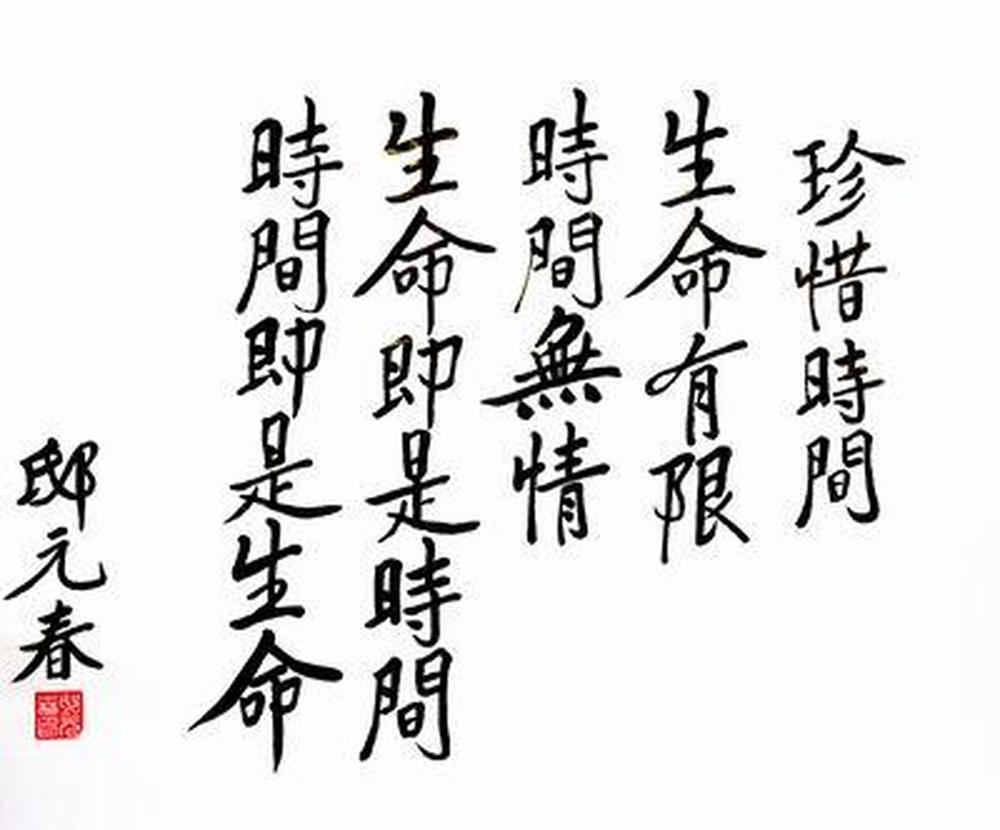 珍惜時間
生命有限
時間無情
生命即是時間
時間即是生命
邸元春